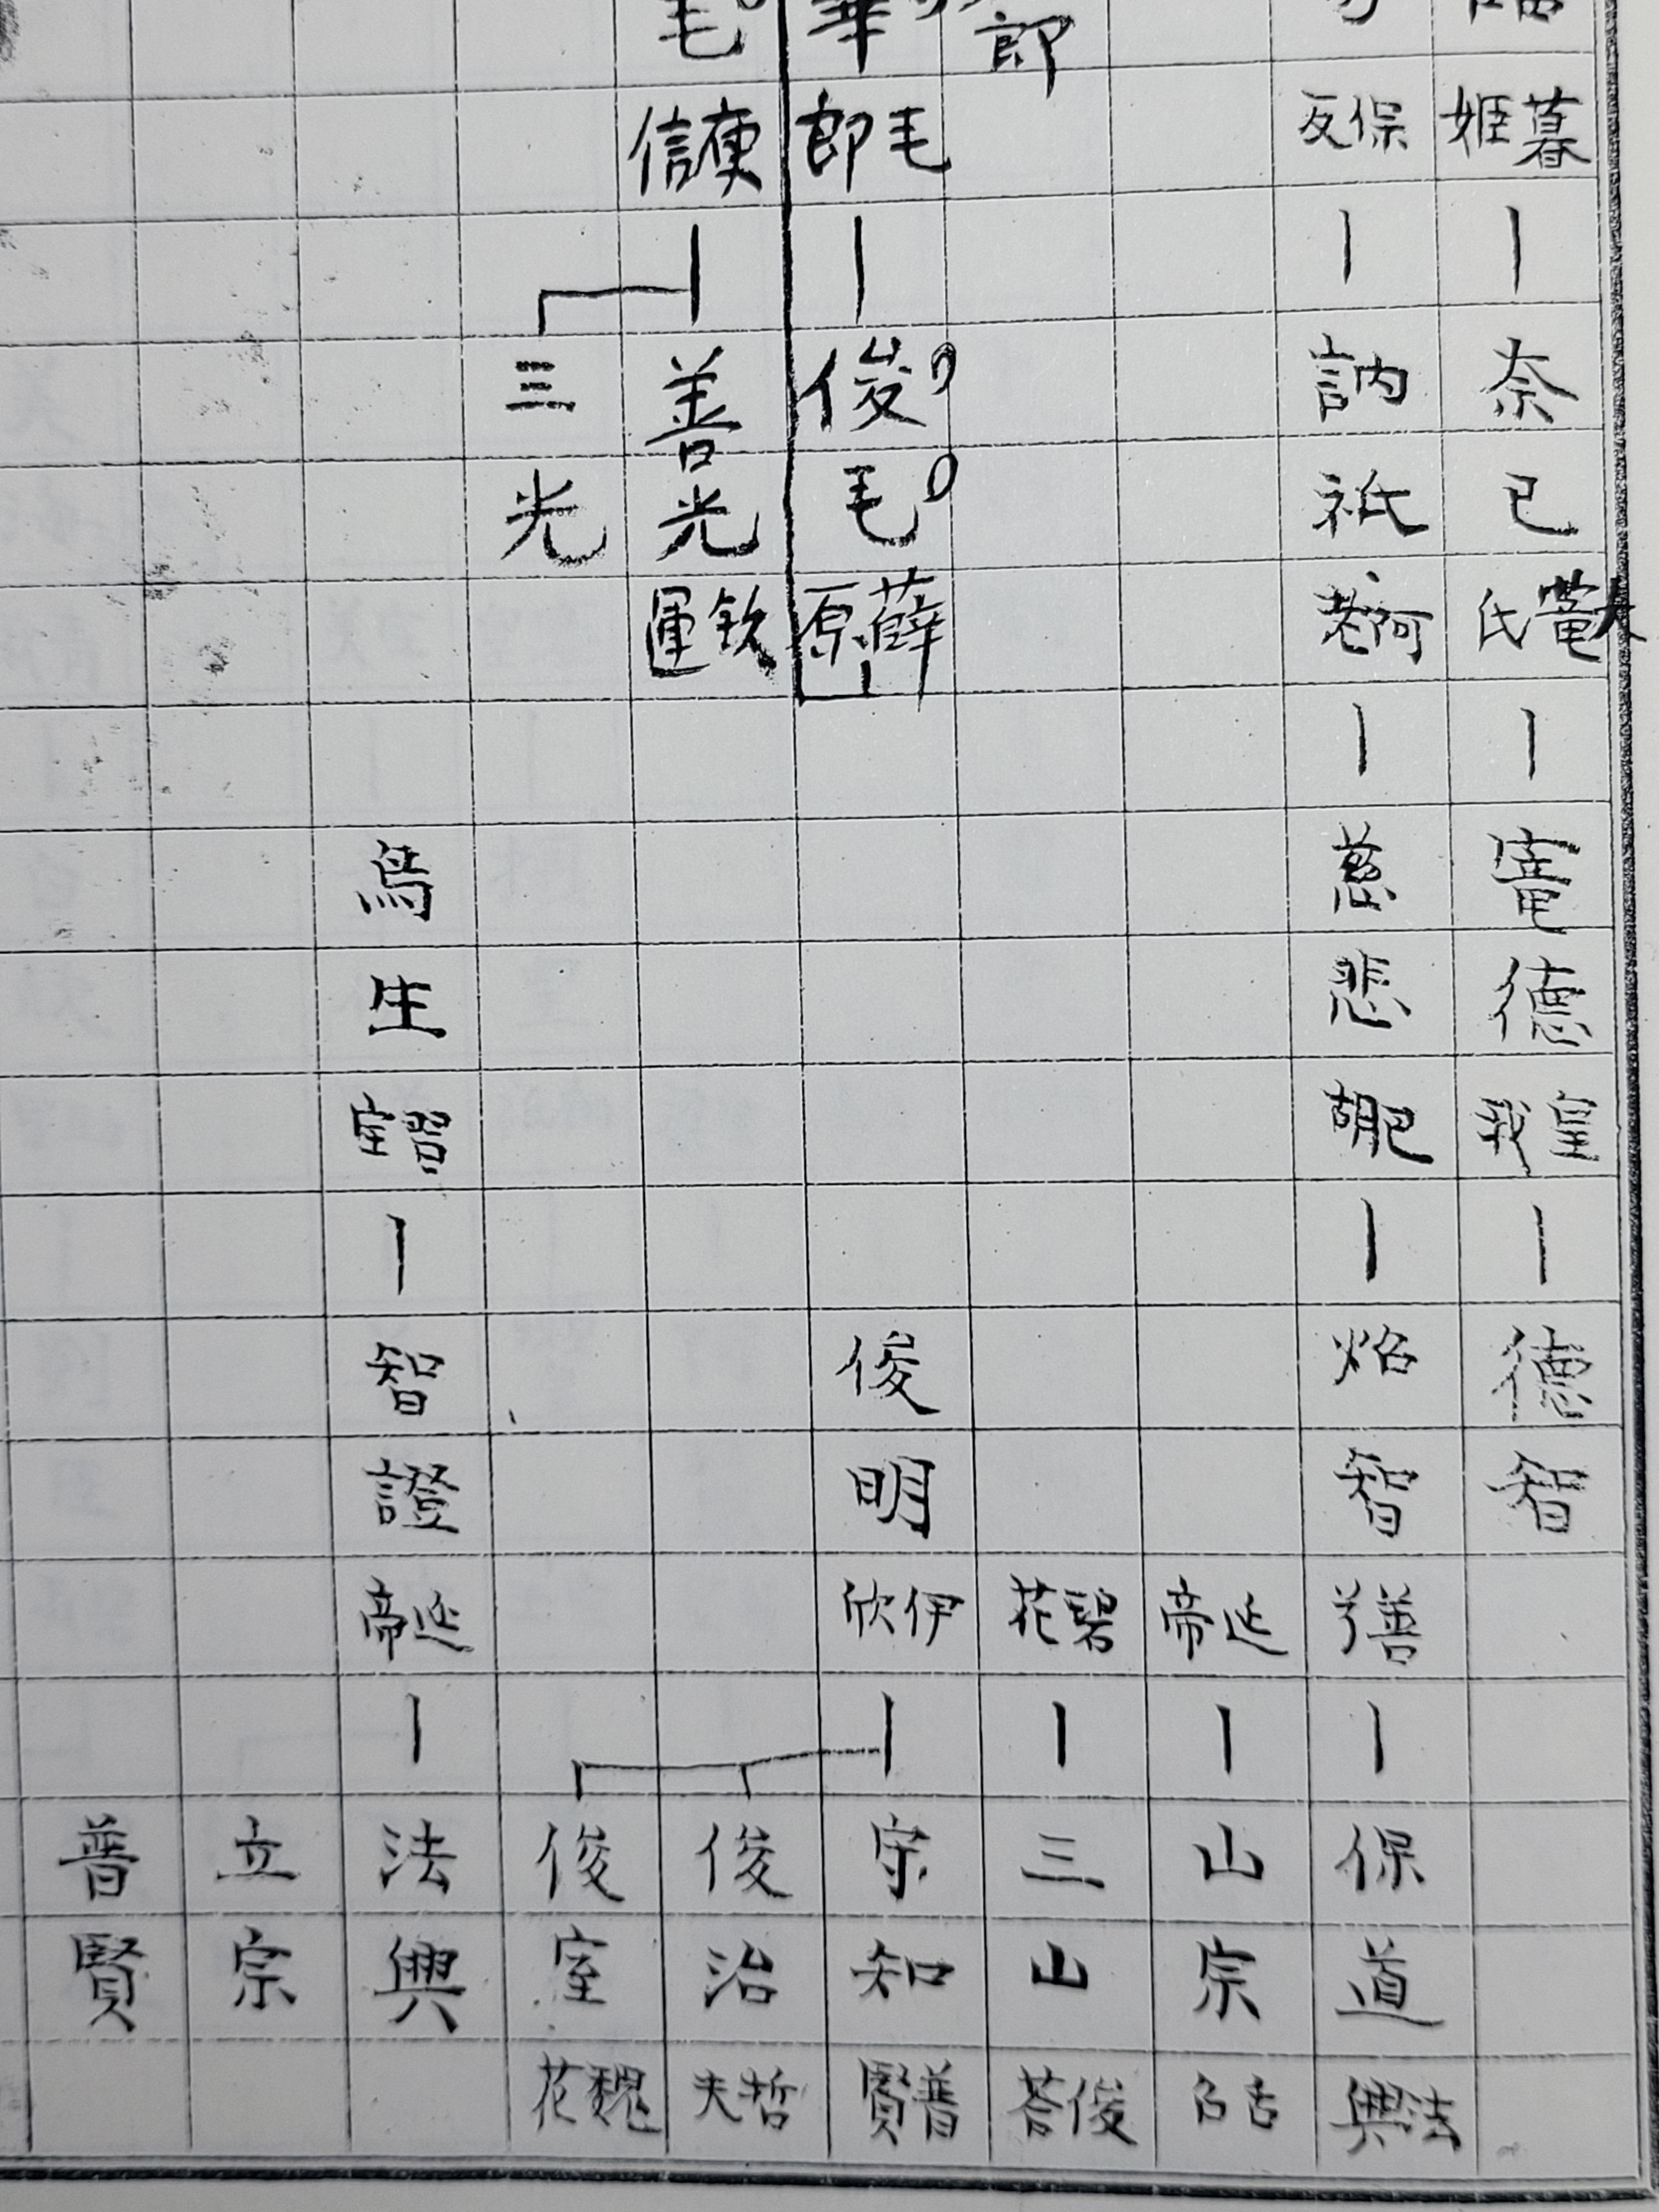 暮姬
奈已
大䇠氏
德
皇我
德智
保反
訥祇
阿老
慈悲
肥胡
炤智
善兮
保道
法興
延帝
山宗
郎
碧花
三山
俊答
毛郎
俊毛
薛原
俊明
伊欣
宗知
普賢
毛
信
善光
欽運
俊治
哲夫
三光
俊室
魏花
為生
習宝
智證
延帝
法興
立宗
普賢